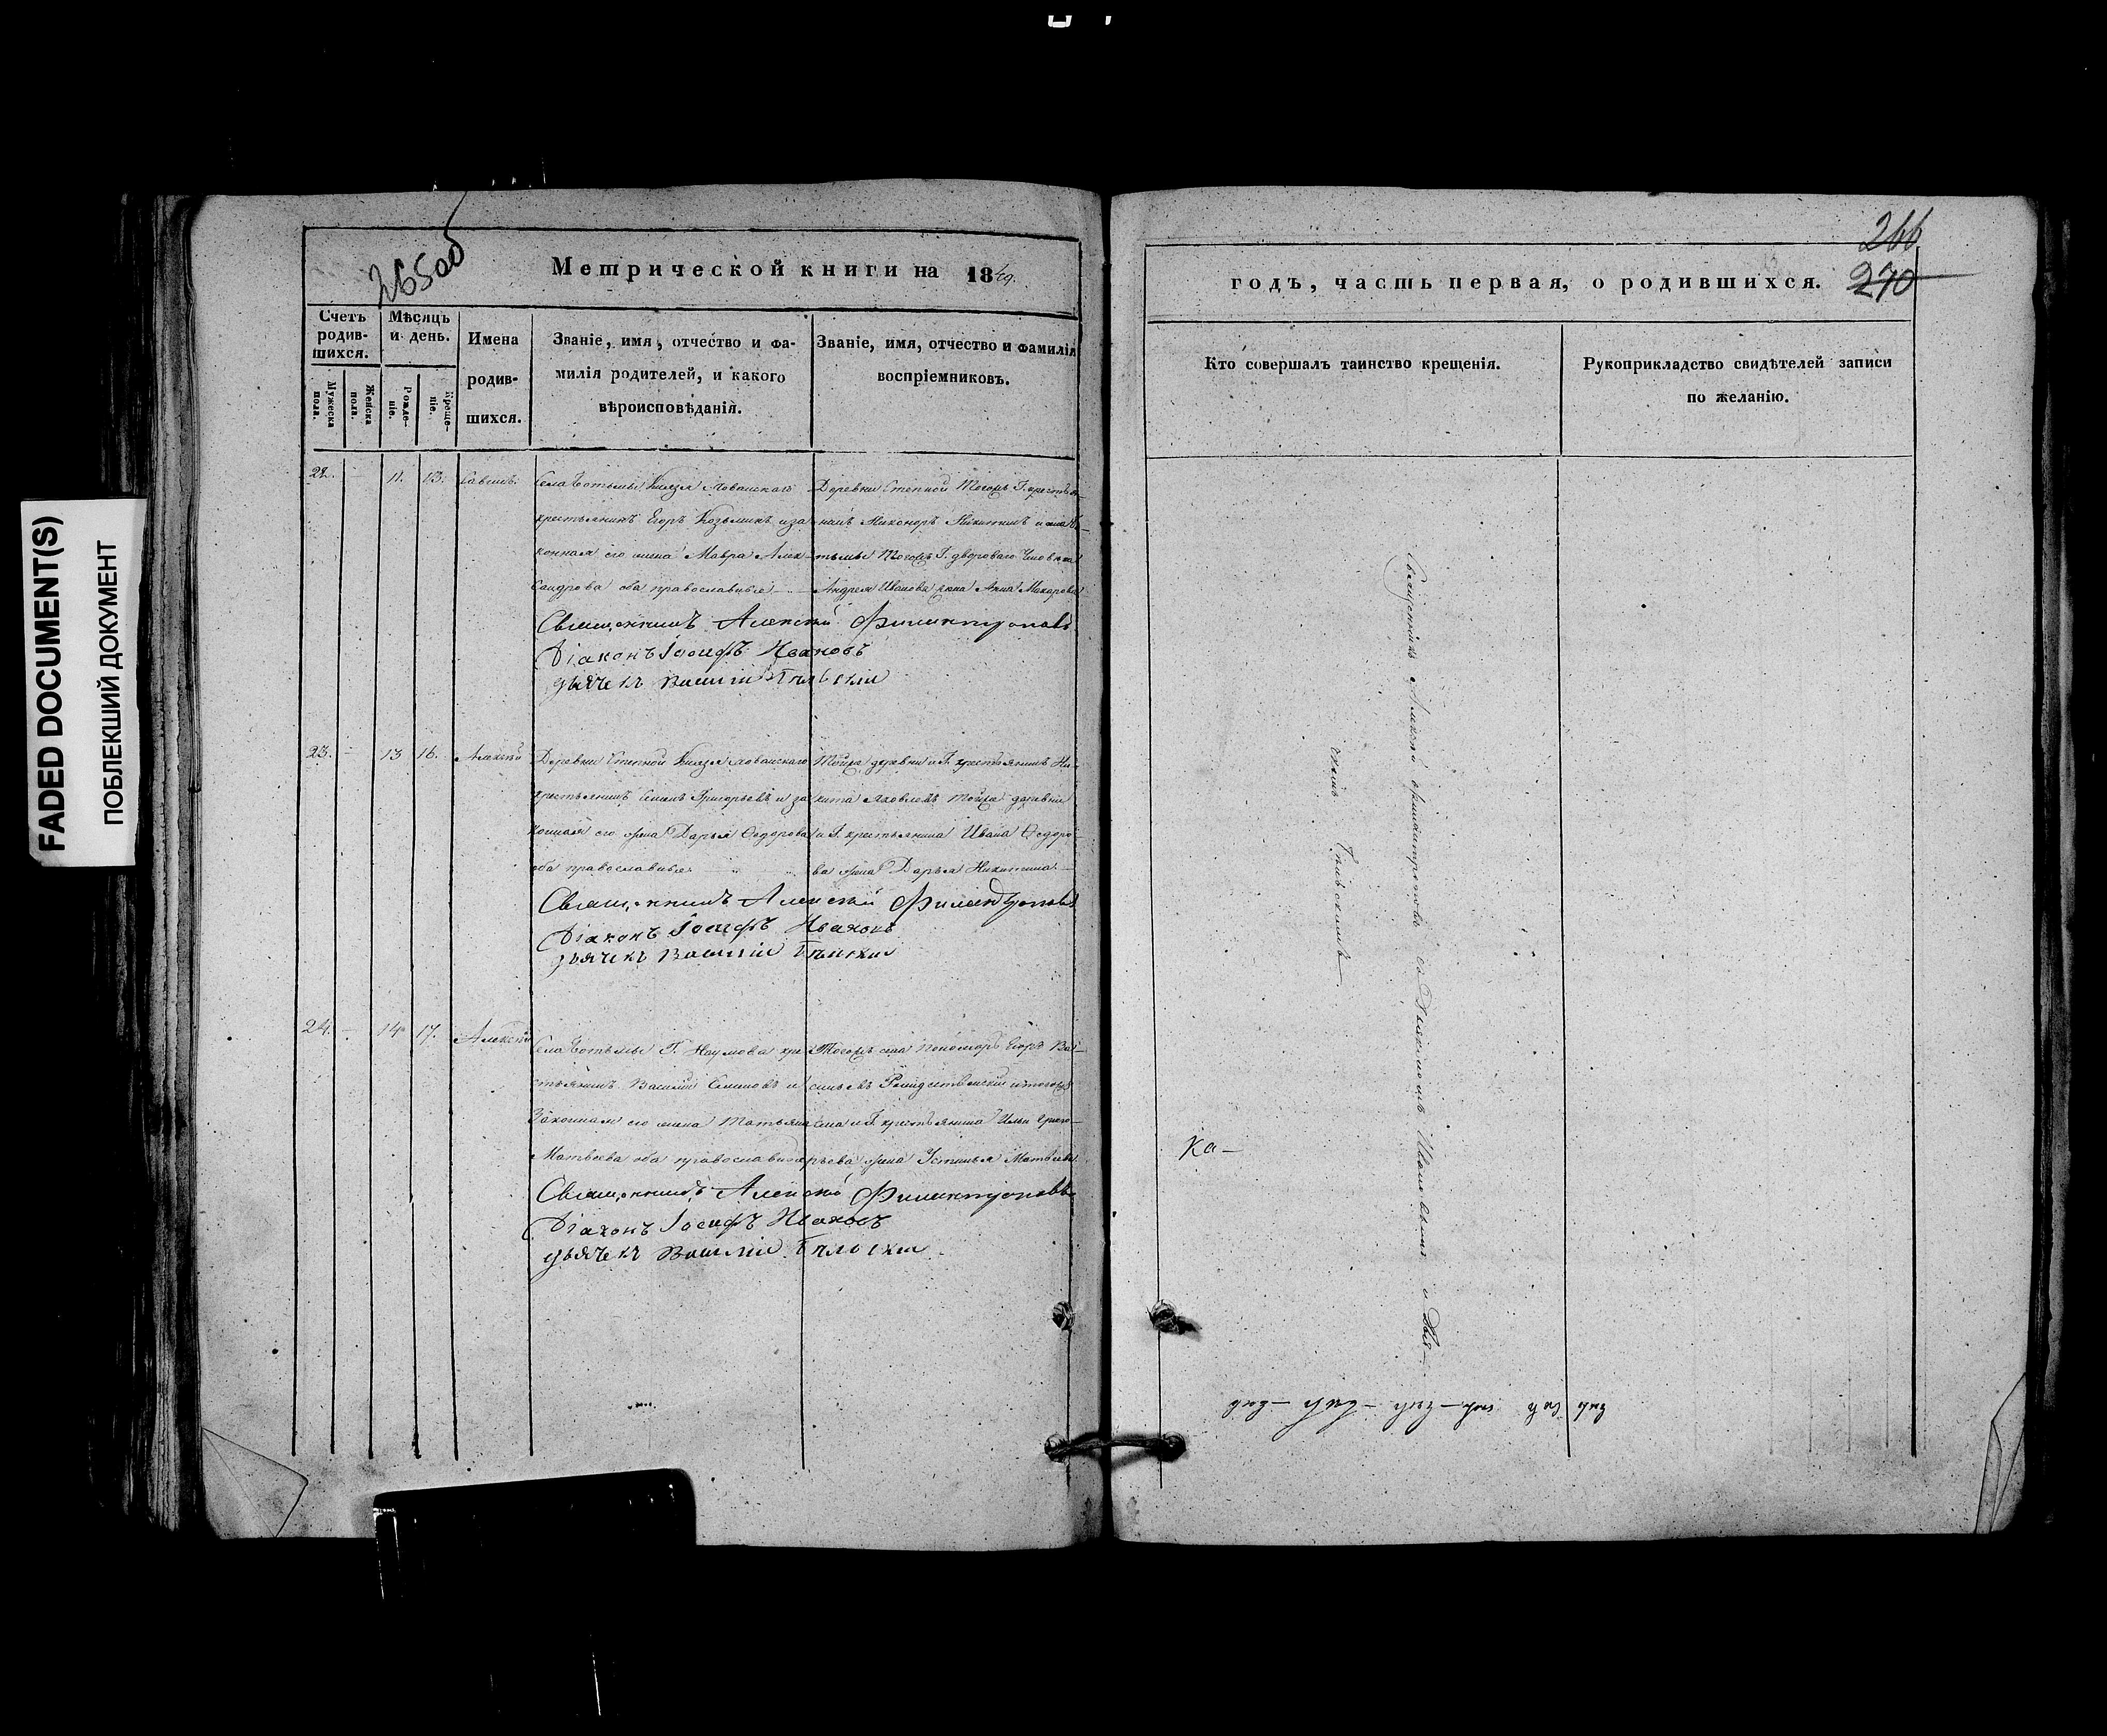 FADED DOCUMENT(S)
ПОБЛЕКШИЙ ДОКУМЕНТ
265об
Метрической книги на 1849.
Счетъ родив-шихся.
Мужеска пола.
Женска пола.
Мѣсяцъ и день.
Рожде-ніе.
Креще-ніе.
Имена родив-шихся.
Званіе, имя, отчество и фа-
милія родителей, и какого
вѣроисповѣданія.
Званіе, имя, отчество и фамилія
воспріемниковъ.
22. - 11. 13. Савинъ.
Села Князя Хованскаго
крестьянинъ Егоръ Козьминъ и за
конная его жена Мавра Алек-
сандрова оба православные
Деревни Степной Тогожъ Г. крестья-
нинъ Никоноръ Никитинъ и
Тогожъ Г. двороваго Человека
Андрея Иванова жена Анна Макарова
Священникъ Алексѣй Филантроповъ
Діаконъ Іосифъ Ивановъ
дьячекъ Василій
23. - 13 16. Алексѣй
Деревни Степной Князя Хованскаго
крестьянинъ Семенъ Григорьевъ и за
конная его жена Дарья Федорова
оба православные
Тойже деревни и Г. крестьянинъ Ни-
кита Яковлевъ Тойже деревни
и Г. крестьянина Ивана Федоро-
ва жена Дарья Никитина
Священникъ Алексѣй Филантроповъ
Діаконъ Іосифъ Ивановъ
дьячекъ Василій
24. - 14 17. Алексѣй
Села Г. Наумова кре
стьянинъ Василий Семеновъ и
Законная его жена Татьяна
Матвеева оба православные
Тогожъ села Пономарь Егоръ Ва-
сильевъ Рождественскій и тогожъ
села и Г. крестьянина Ильи Григо-
рьева жена Устинья Матвеева
Священникъ Алексѣй Филантроповъ
Діаконъ Іосифъ Ивановъ
дьячекъ Василій
266
270
годъ, часть первая, о родившихся.
Кто совершалъ таинство крещенія.
Рукоприкладство свидѣтелей записи
по желанію.
Священникъ Алексѣй Филантроповъ съ Діакономъ Ивановымъ и Дья-
чкомъ
Ка-